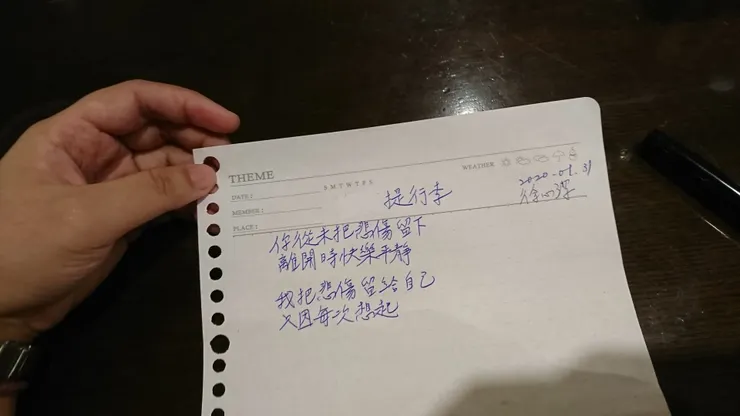 THEME
WEATHER
DATE:
S M T W T F S
2020.01.31
MEMBER:
提行李
PLACE:
你從未把悲傷留下
離開時快樂平靜
我把悲傷留給自己
只因每次想起